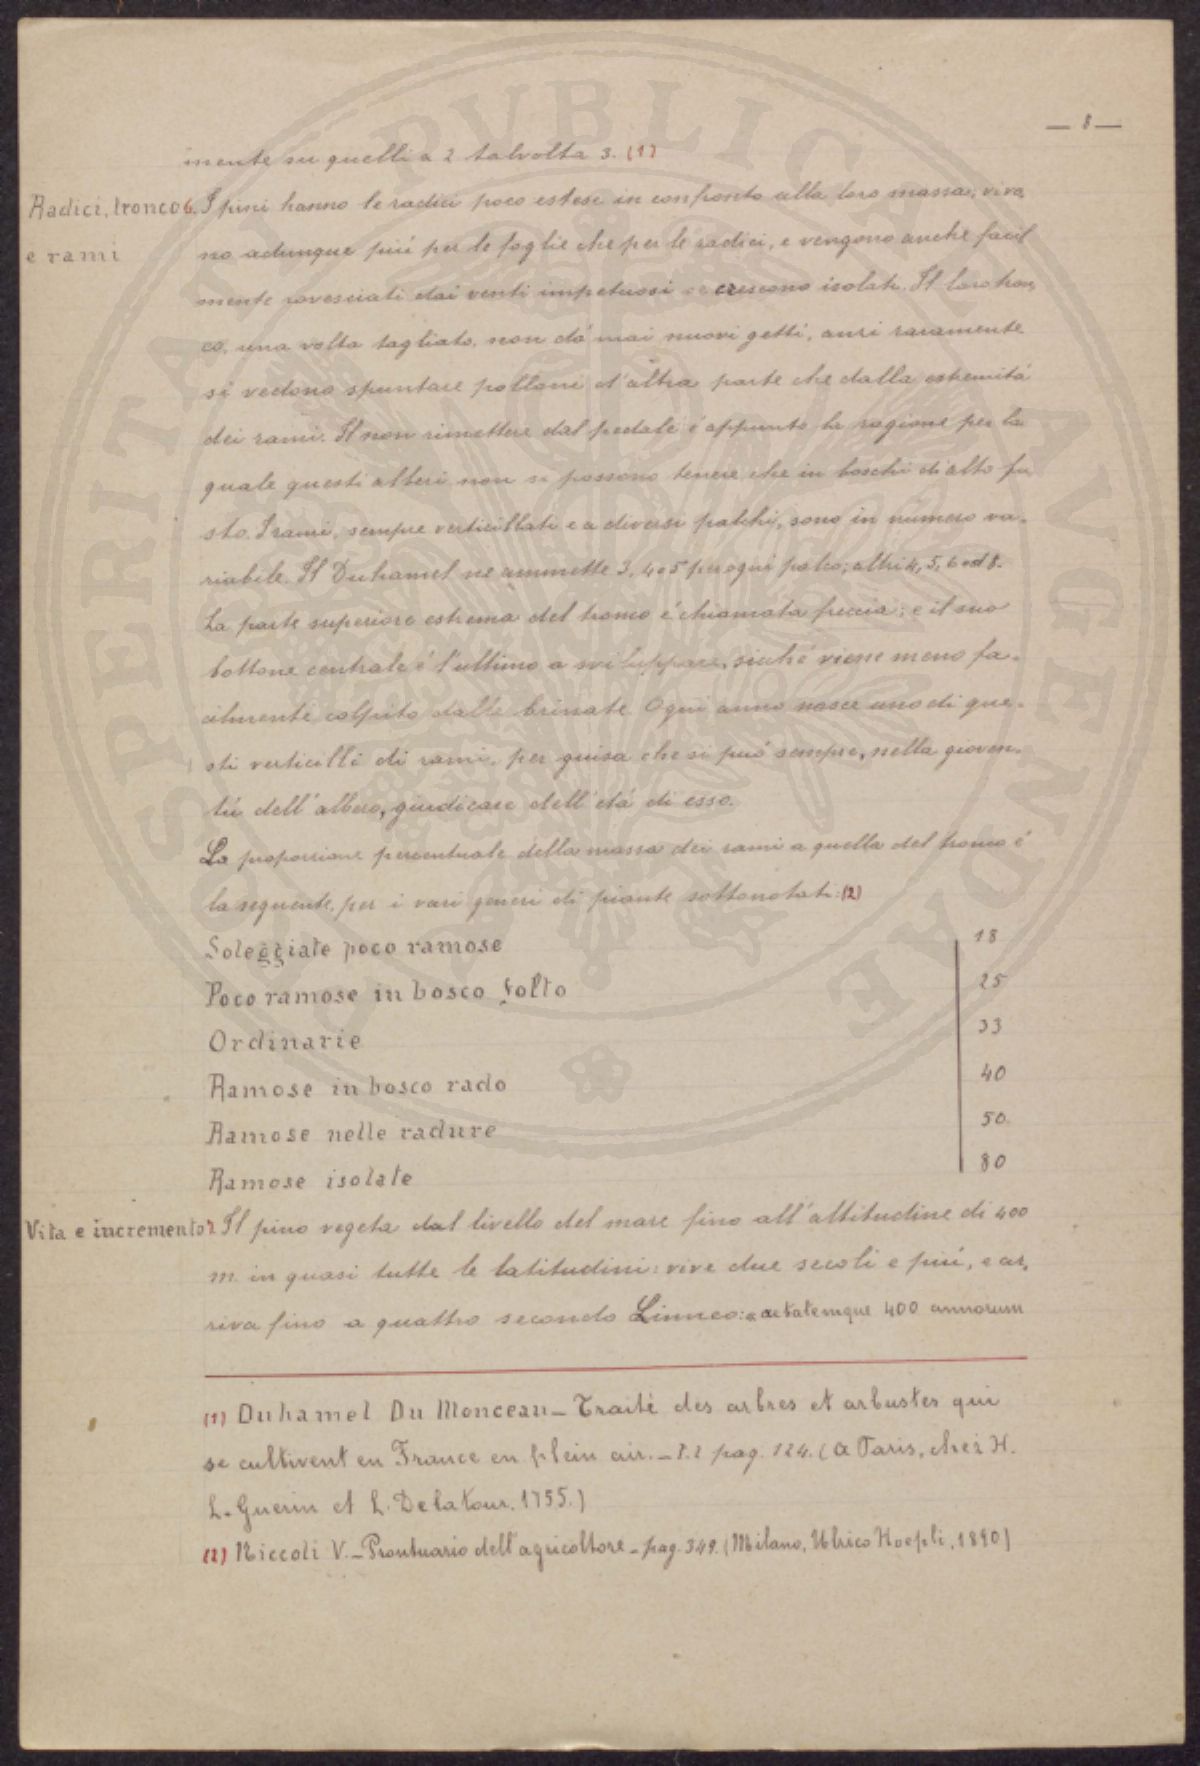 — 8 —
mente su quelli a 2 talvolta 3. (1)
Radici, tronco
e rami
6. I pini hanno le radici poco estese in confronto alla loro massa; vivo,
no adunque più per le foglie che per le radici, e vengono anche facil
mente rovesciati dai venti impetuosi se crescono isolati. Il loro tron,
co, una volta tagliato, non dà mai nuovi getti, anzi raramente
si vedono spuntare polloni d'altra parte che dalla estremità
dei rami. Il non rimettere dal pedale é appunto la ragione per la
quale questi alberi non si possono tenere che in boschi di alto fu
sto. I rami, sempre verticillati e a diversi palchi, sono in numero va.
riabile. Il Duhamel ne ammette 3, 4 o 5 per ogni palco; altri 4, 5, 6 ed 8.
La parte superiore estrema del tronco é chiamata freccia; e il suo
bottone centrale é l'ultimo a sviluppare, sicché viene meno fa.
cilmente colpito dalle brinate. Ogni anno nasce uno di que.
sti verticilli di rami, per guisa che si può sempre, nella gioven.
tù dell'albero, giudicare dell'età di esso.
La proporzione percentuale della massa dei rami a quella del tronco é
la seguente, per i vari generi di piante sottonotati: (2)
Soleggiate poco ramose 18
Poco ramose in bosco folto 25
Ordinarie 33
Ramose in bosco rado 40
Ramose nelle radure 50
Ramose isolate 80
Vita e incremento
7. Il pino vegeta dal livello del mare fino all'altitudine di 400
m. in quasi tutte le latitudini: vive due secoli e più, e ar,
riva fino a quattro secondo Linneo: « aetatemque 400 annorum
(1) Duhamel Du Monceau — Traité des arbres et arbustes qui
se cultivent en France en plein air. — T. 2 pag. 124. (a Paris, chez H.
L. Guerin et L. Delatour, 1755.)
(2) Niccoli V. — Prontuario dell'agricoltore — pag. 349. (Milano, Ulrico Hoepli, 1890)
PROSPERITATI PVBLICAE AVGENDAE